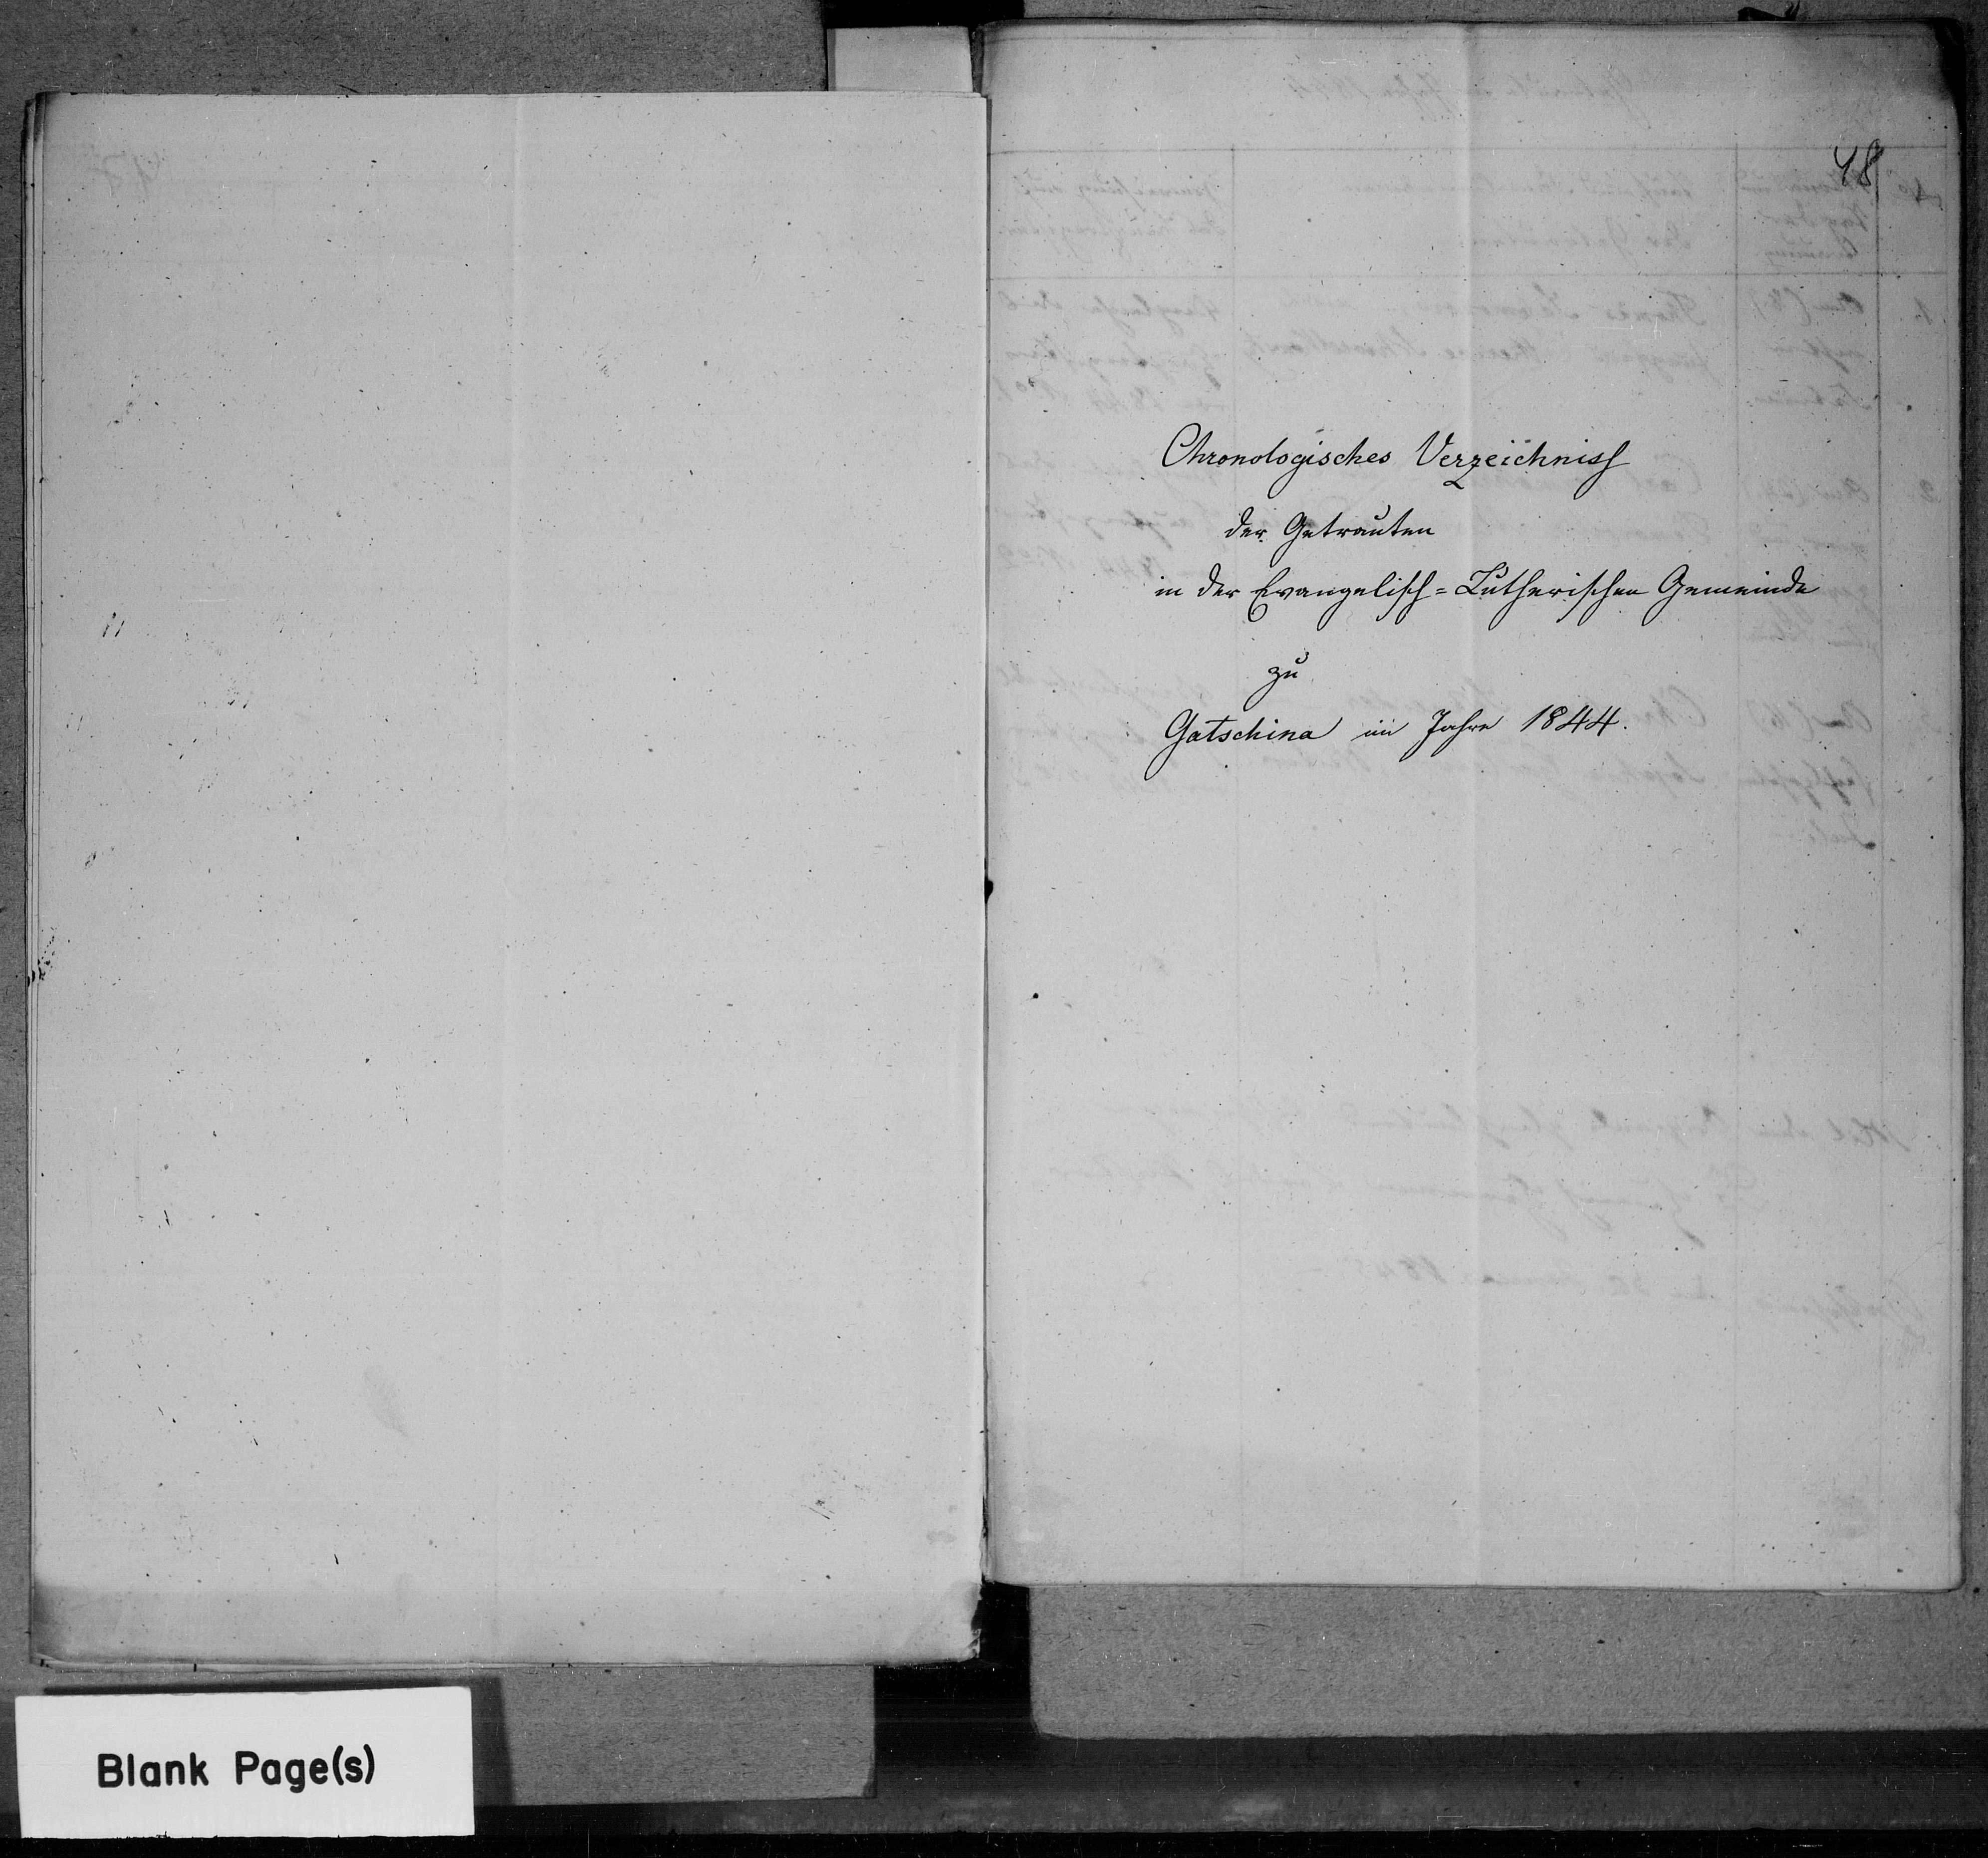 48
Chronologisches Verzeichniss
der Getrauten
in der Evangelisch=Lutherischen Gemeinde
zu
Gatschina im Jahre 1844.
Blank Page(s)